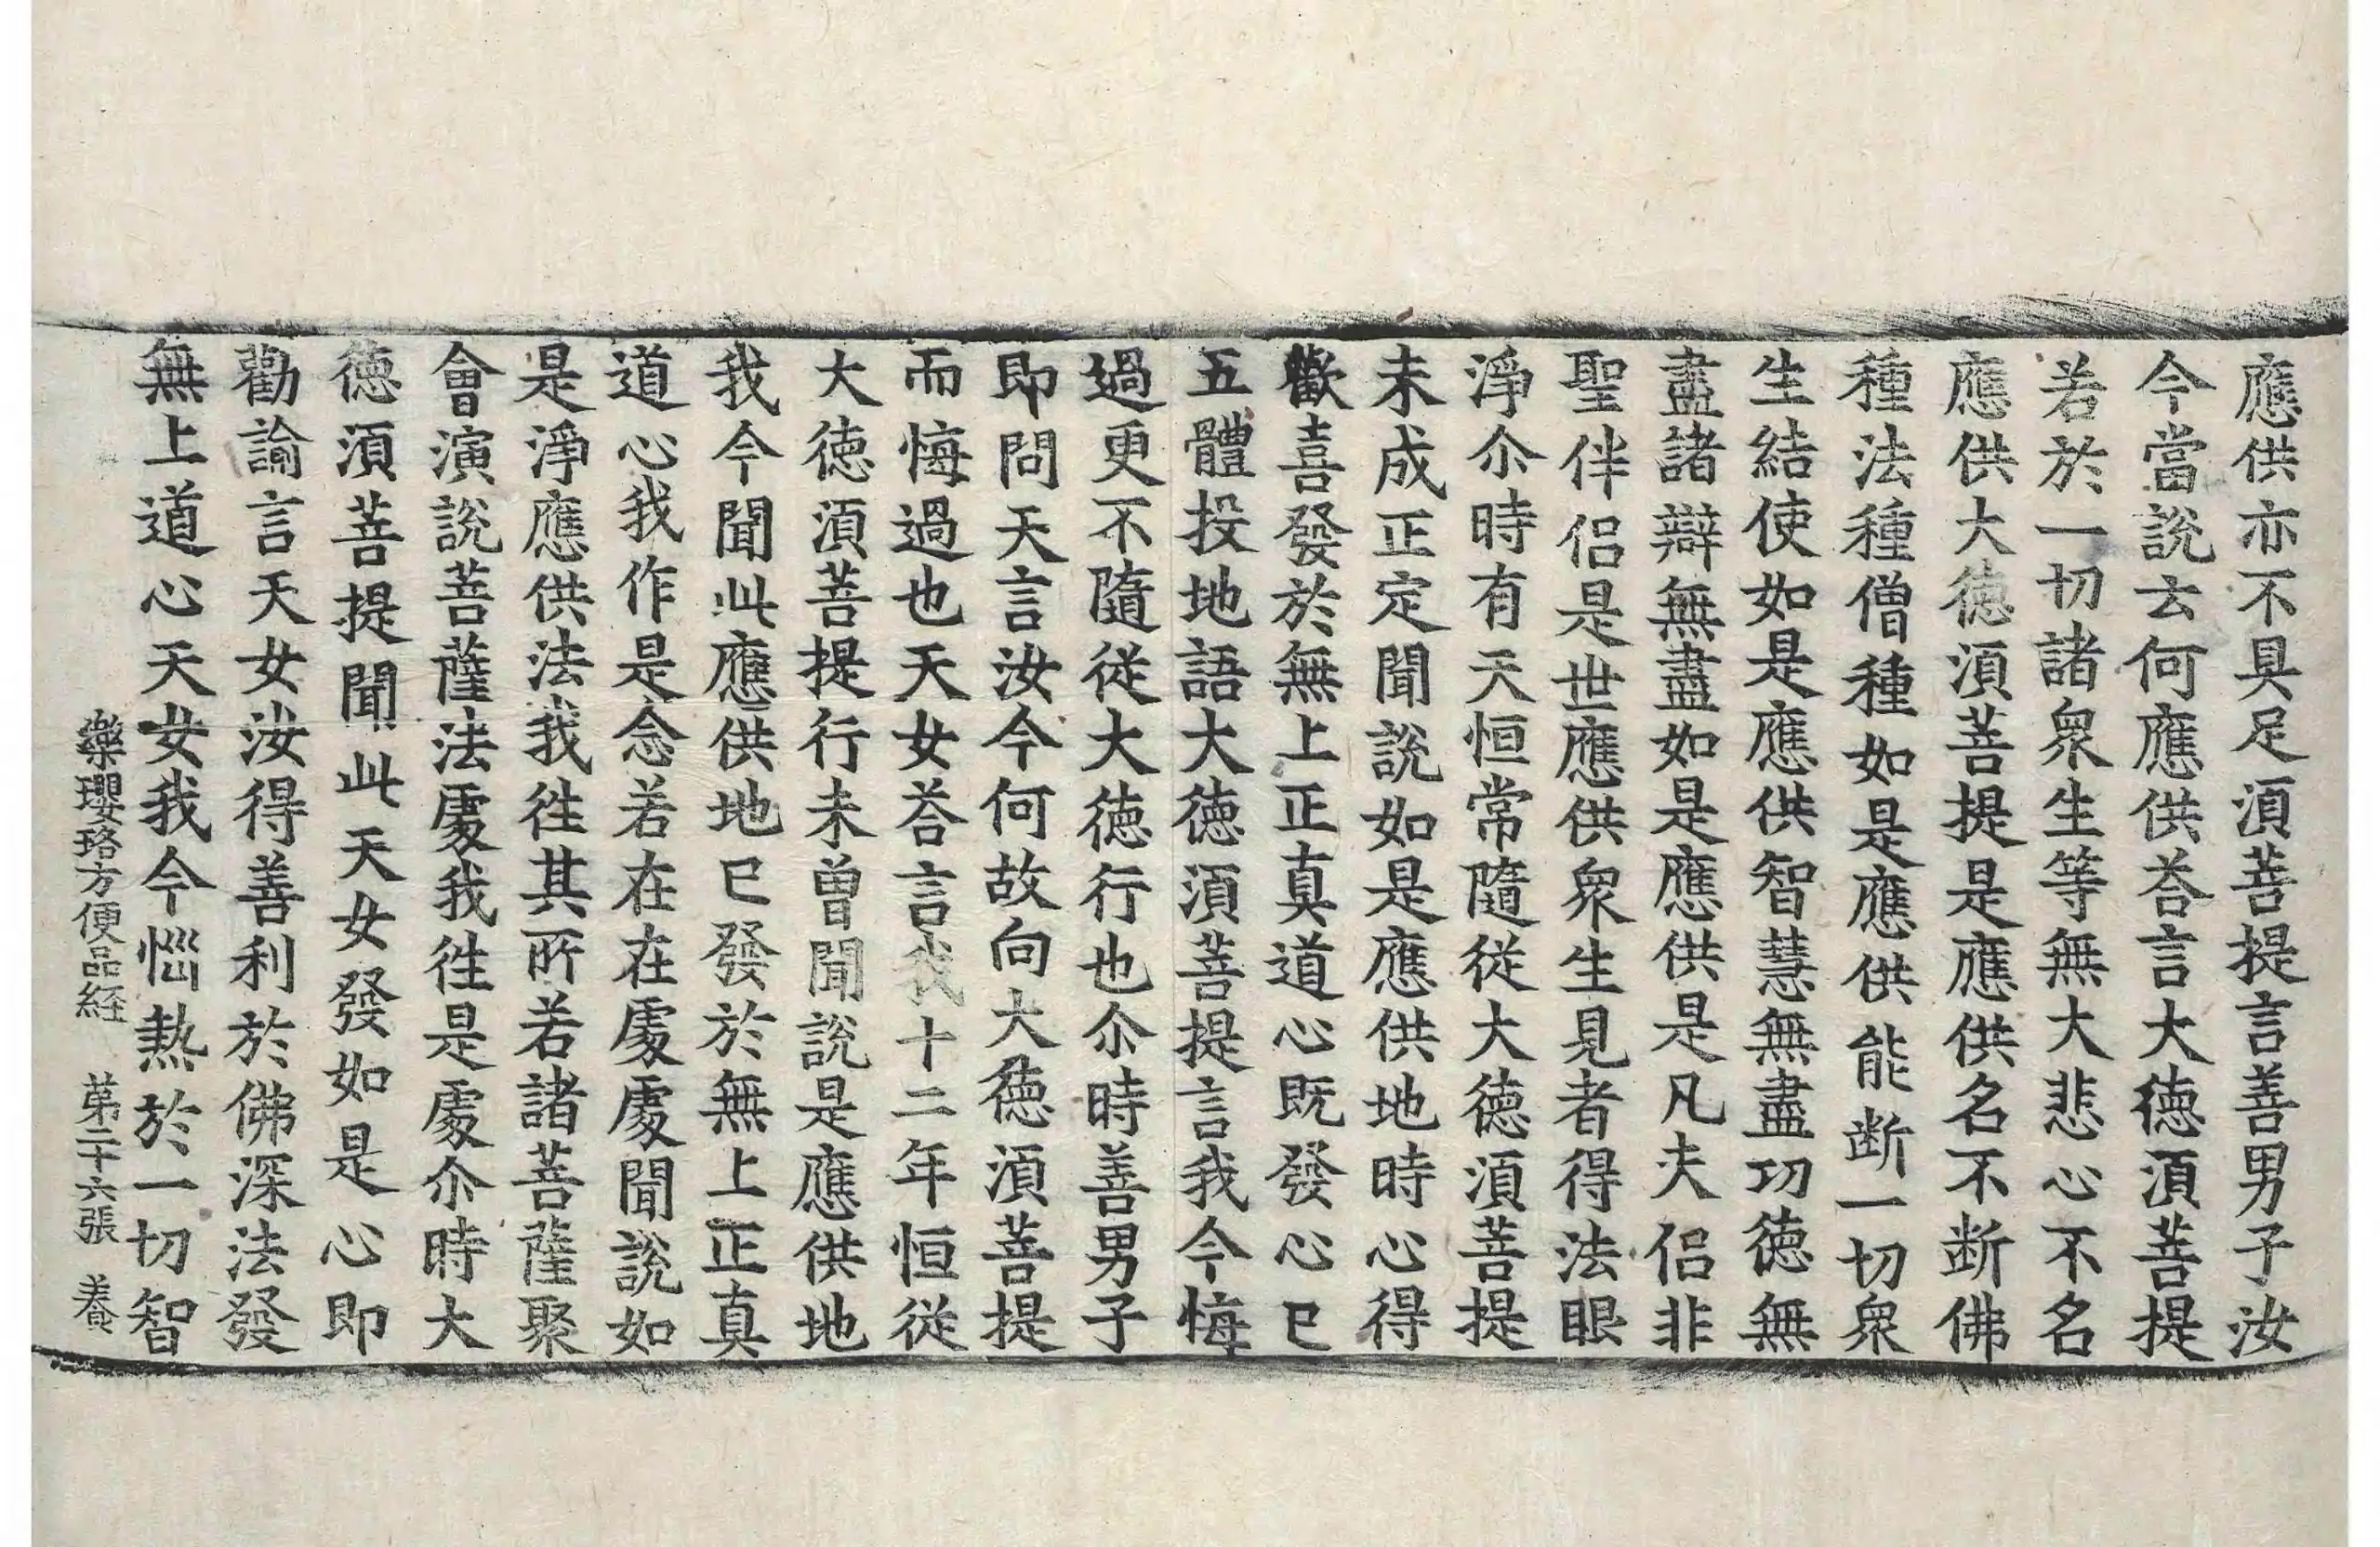 應供亦不具足湏菩提言善男子汝
今當說云何應供荅言大徳湏菩提
若於一切諸衆生等無大悲心不名
應供大徳湏菩提是應供名不断佛
種法種僧種如是應供能断一切衆
生結使如是應供智慧無盡功徳無
盡諸辯無盡如是應供是凡夫侣非
聖伴侣是世應供衆生見者得法眼
淨尒時有天恒常隨從大徳湏菩提
未成正定聞說如是應供地時心得
歡喜發於無上正真道心既發心已
五體投地語大徳湏菩提言我今悔
過更不隨從大徳行也尒時善男子
即問天言汝今何故向大徳湏菩提
而悔過也天女荅言我十二年恒從
大徳湏菩提行未曾聞說是應供地
我今聞此應供地已發於無上正真
道心我作是念若在在處處聞說如
是淨應供法我徃其所若諸菩薩聚
會演說菩薩法處我徃是處尒時大
徳湏菩提聞此天女發如是心即
勸諭言天女汝得善利於佛深法發
無上道心天女我今惱熱於一切智
樂瓔珞方便品経　苐二十六張　養